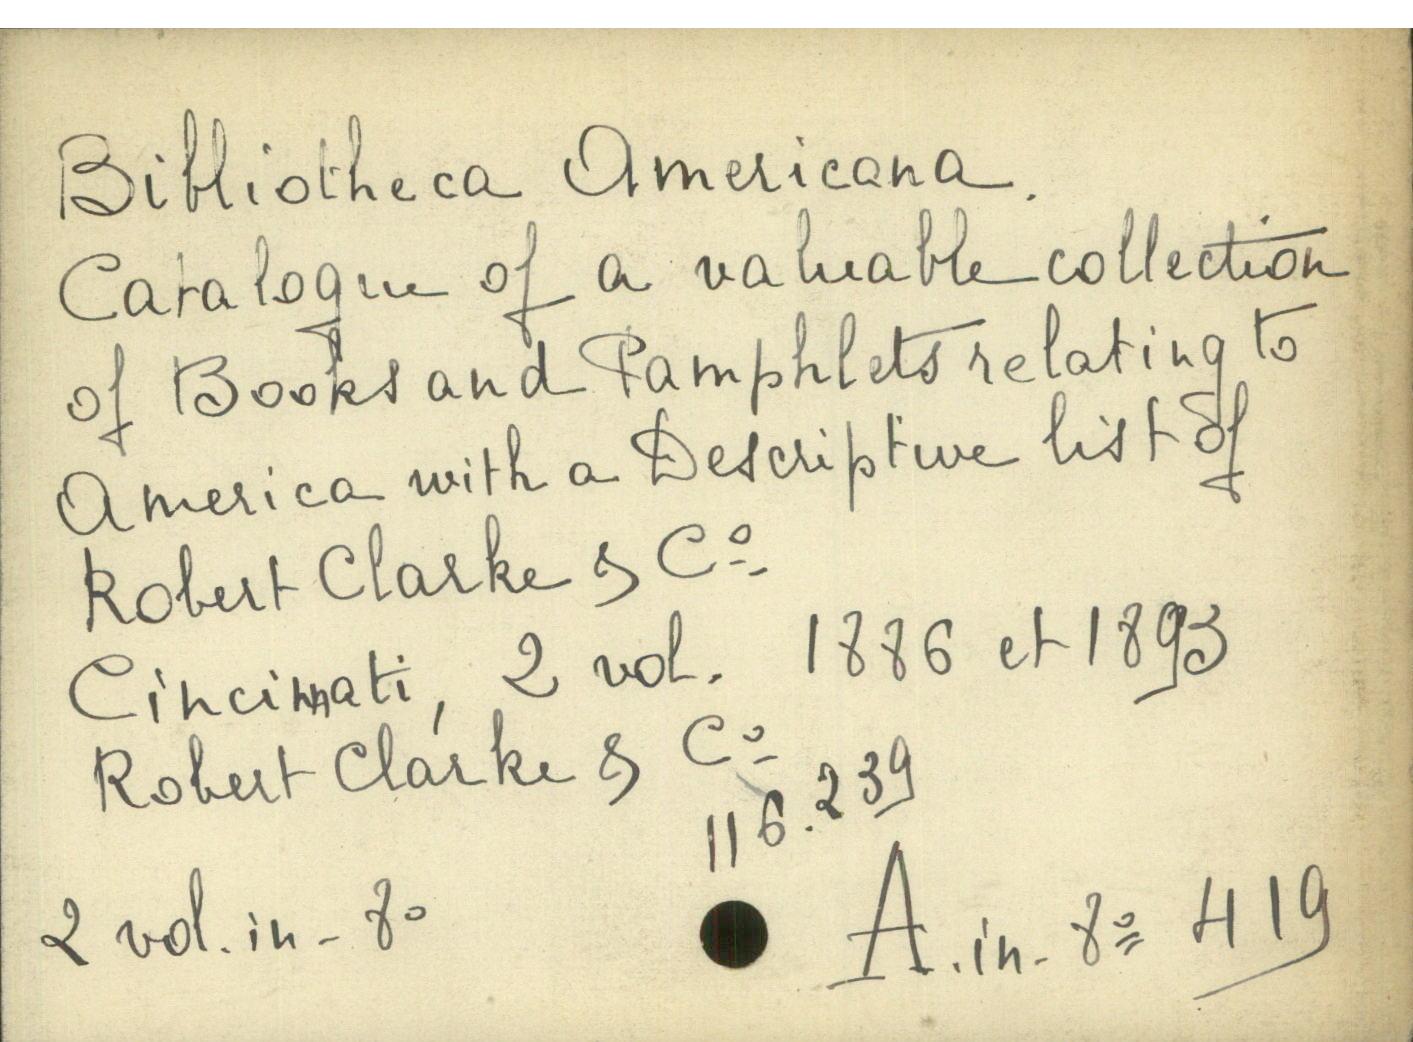 Bibliotheca Americana.
Catalogue of a valuable collection
of Books and Pamphlets relating to
America with a Descriptive list of
Robert Clarke & Cº
Cincinnati, 2 vol. 1886 et 1893
Robert Clarke & Cº
116.239
2 vol. in-8º
A. in-8º 419